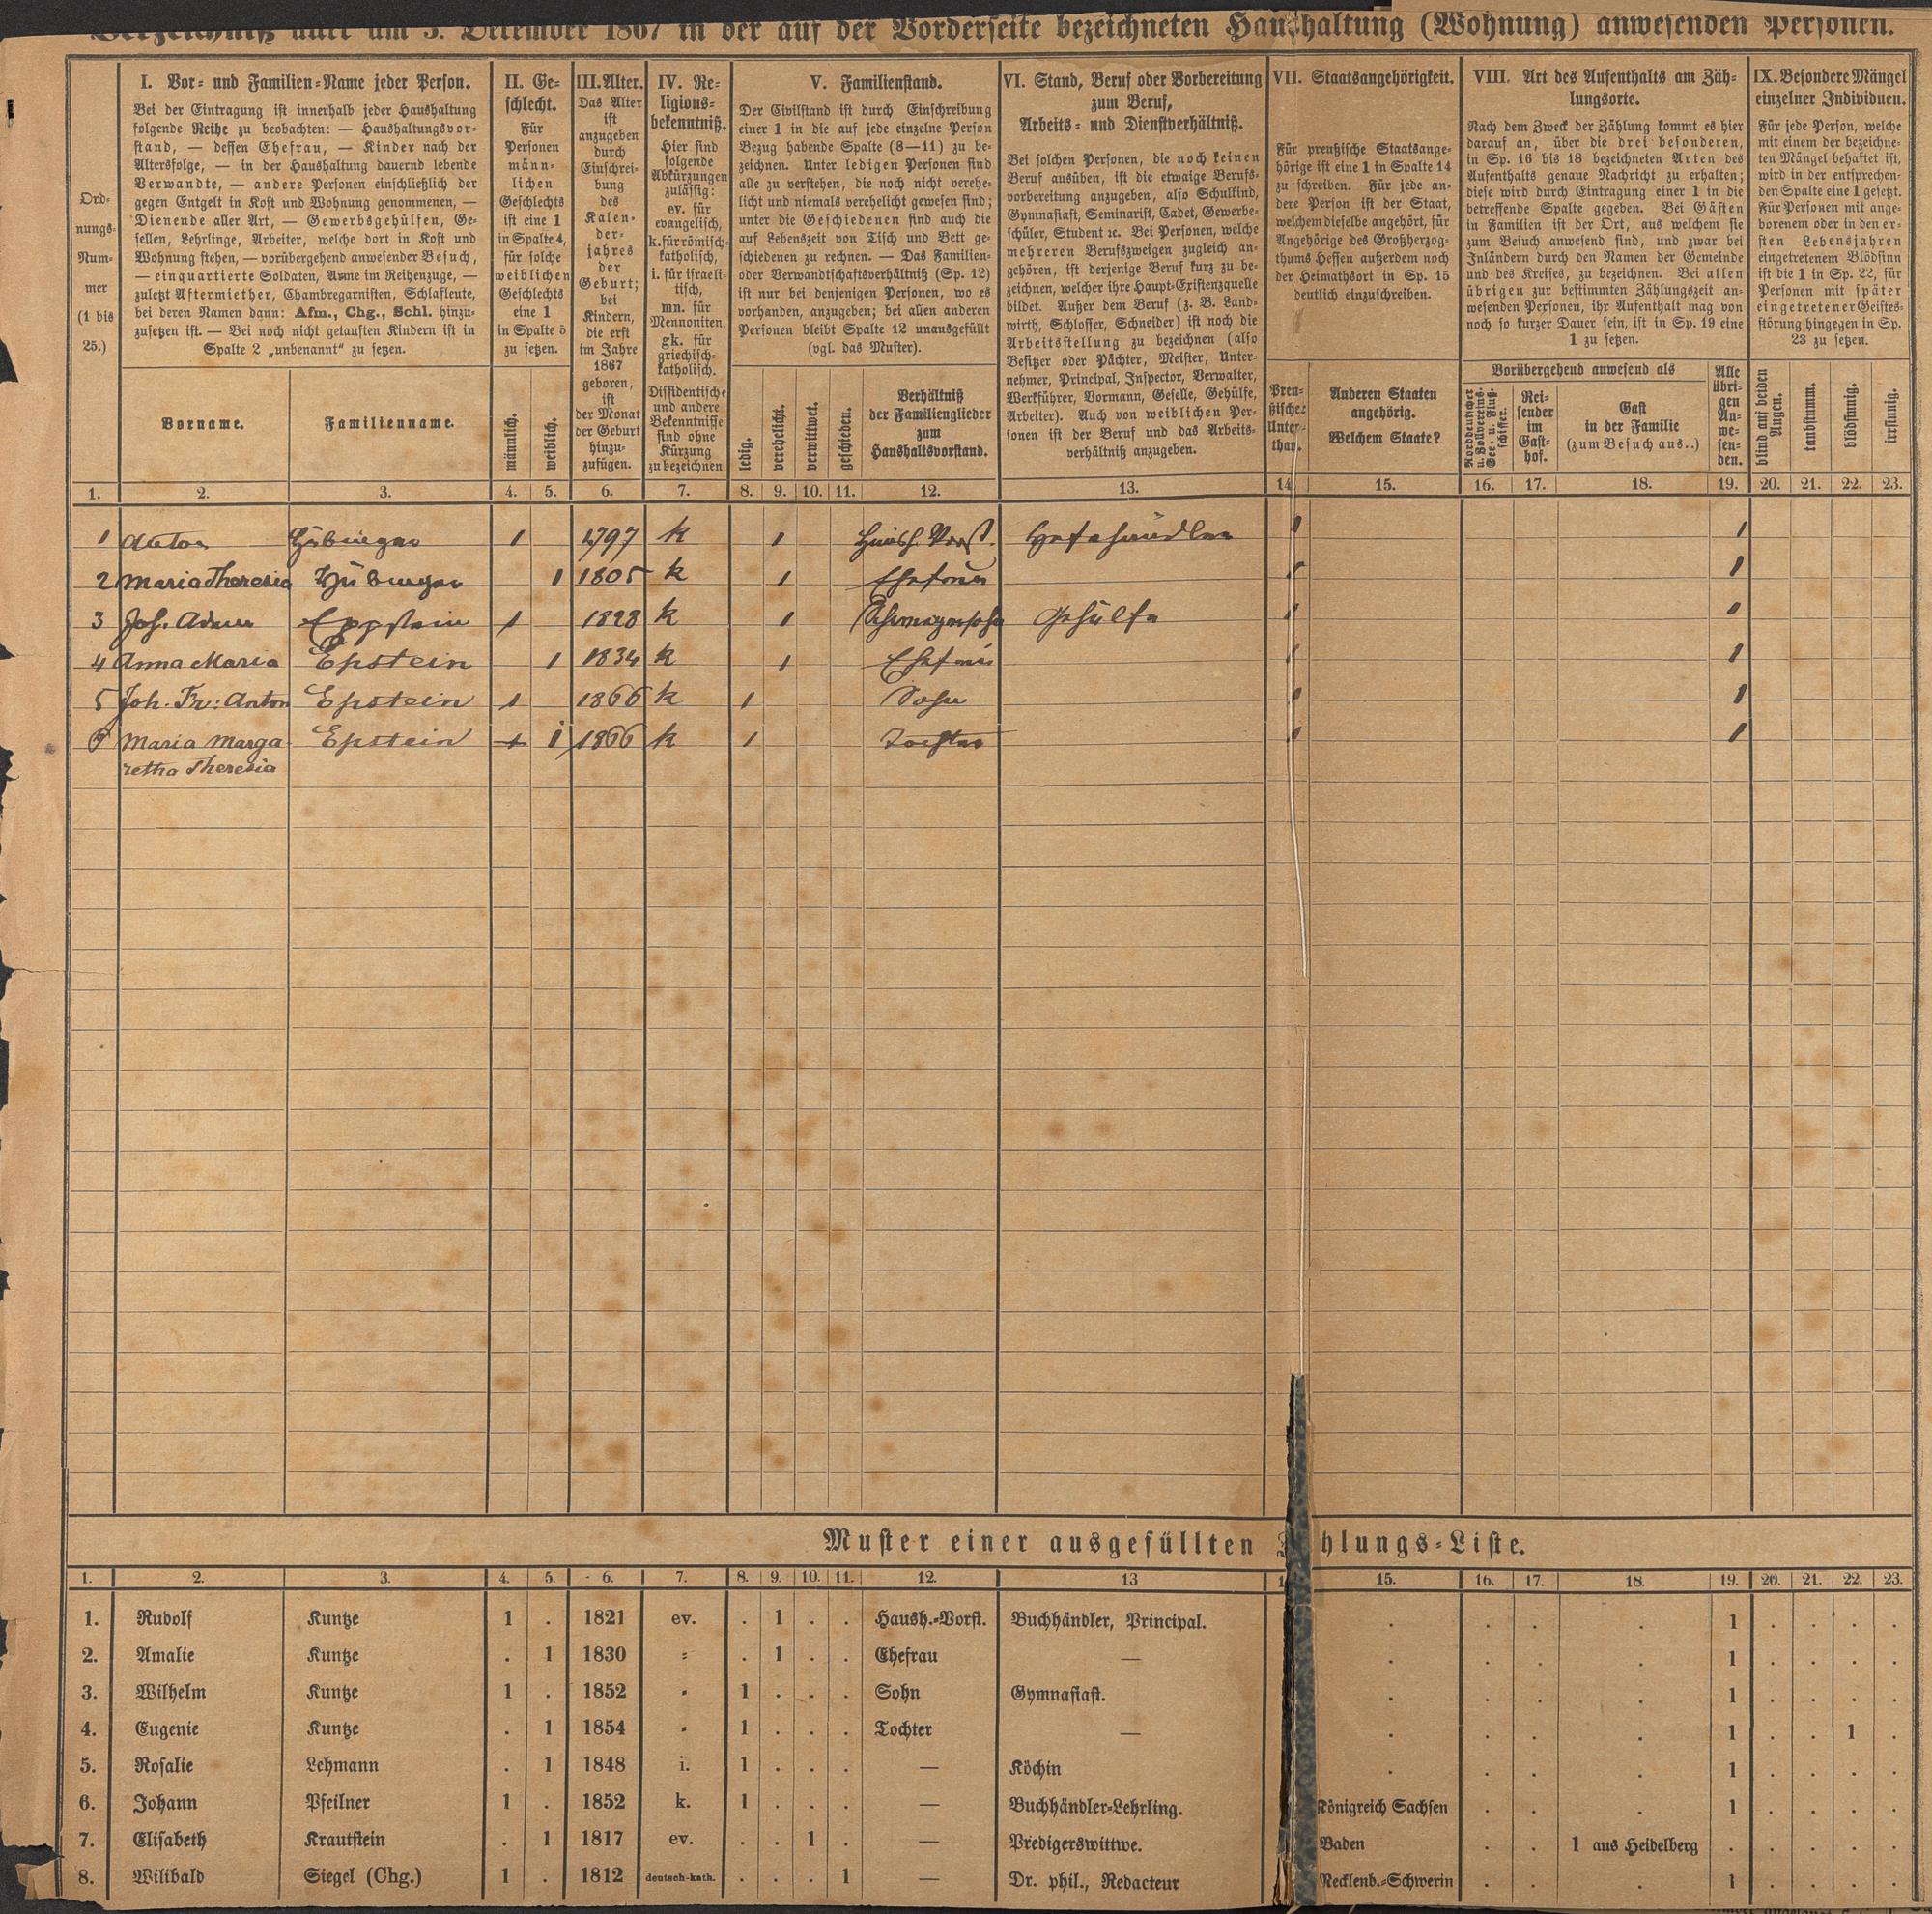 Verzeichniß aller am 3. December 1867 in der auf der Vorderseite bezeichneten Haushaltung (Wohnung) anwesenden Personen.
Ord-
nungs-
Num-
mer
(1 bis
25.)
I. Vor- und Familien-Name jeder Person.
Bei der Eintragung ist innerhalb jeder Haushaltung
folgende Reihe zu beobachten: — Haushaltungsvor-
stand, — dessen Ehefrau, — Kinder nach der
Altersfolge, — in der Haushaltung dauernd lebende
Verwandte, — andere Personen einschließlich der
gegen Entgelt in Kost und Wohnung genommenen, —
Dienende aller Art, — Gewerbsgehülfen, Ge-
sellen, Lehrlinge, Arbeiter, welche dort in Kost und
Wohnung stehen, — vorübergehend anwesender Besuch,
— einquartierte Soldaten, Amme im Reihenzuge, —
zuletzt Aftermiether, Chambregarnisten, Schlafleute,
bei deren Namen dann: Afm., Chg., Schl. hinzu-
zusetzen ist. — Bei noch nicht getauften Kindern ist in
Spalte 2 „unbenannt“ zu setzen.
Vorname.
Familienname.
II. Ge-
schlecht.
Für
Personen
männ-
lichen
Geschlechts
ist eine 1
in Spalte 4,
für solche
weiblichen
Geschlechts
eine 1
in Spalte 5
zu setzen.
männlich.
weiblich.
III. Alter.
Das Alter
ist
anzugeben
durch
Einschrei-
bung
des
Kalen-
der-
jahres
der
Geburt;
bei
Kindern,
die erst
im Jahre
1867
geboren,
ist
der Monat
der Geburt
hinzu-
zufügen.
IV. Re-
ligions-
bekenntniß.
Hier sind
folgende
Abkürzungen
zulässig:
ev. für
evangelisch,
k. für römisch-
katholisch,
i. für israeli-
tisch,
mn. für
Mennoniten,
gk. für
griechisch-
katholisch.
Dissidentische
und andere
Bekenntnisse
sind ohne
Kürzung
zu bezeichnen
V. Familienstand.
Der Civilstand ist durch Einschreibung
einer 1 in die auf jede einzelne Person
Bezug habende Spalte (8—11) zu be-
zeichnen. Unter ledigen Personen sind
alle zu verstehen, die noch nicht verehe-
licht und niemals verehelicht gewesen sind;
unter die Geschiedenen sind auch die
auf Lebenszeit von Tisch und Bett ge-
schiedenen zu rechnen. — Das Familien-
oder Verwandtschaftsverhältniß (Sp. 12)
ist nur bei denjenigen Personen, wo es
vorhanden, anzugeben; bei allen anderen
Personen bleibt Spalte 12 unausgefüllt
(vgl. das Muster).
ledig.
verehelicht.
verwittwet.
geschieden.
Verhältniß
der Familienglieder
zum
Haushaltsvorstand.
VI. Stand, Beruf oder Vorbereitung
zum Beruf,
Arbeits- und Dienstverhältniß.
Bei solchen Personen, die noch keinen
Beruf ausüben, ist die etwaige Berufs-
vorbereitung anzugeben, also Schulkind,
Gymnasiast, Seminarist, Cadet, Gewerbe-
schüler, Student ꝛc. Bei Personen, welche
mehreren Berufszweigen zugleich an-
gehören, ist derjenige Beruf kurz zu be-
zeichnen, welcher ihre Haupt-Existenzquelle
bildet. Außer dem Beruf (z. B. Land-
wirth, Schlosser, Schneider) ist noch die
Arbeitsstellung zu bezeichnen (also
Besitzer oder Pächter, Meister, Unter-
nehmer, Principal, Inspector, Verwalter,
Werkführer, Vormann, Geselle, Gehülfe,
Arbeiter). Auch von weiblichen Per-
sonen ist der Beruf und das Arbeits-
verhältniß anzugeben.
VII. Staatsangehörigkeit.
Für preußische Staatsange-
hörige ist eine 1 in Spalte 14
zu schreiben. Für jede an-
dere Person ist der Staat,
welchem dieselbe angehört, für
Angehörige des Großherzog-
thums Hessen außerdem noch
der Heimathsort in Sp. 15
deutlich einzuschreiben.
Preu-
ßischer
Unter-
than.
Anderen Staaten
angehörig.
Welchem Staate?
VIII. Art des Aufenthalts am Zäh-
lungsorte.
Nach dem Zweck der Zählung kommt es hier
darauf an, über die drei besonderen,
in Sp. 16 bis 18 bezeichneten Arten des
Aufenthalts genaue Nachricht zu erhalten;
diese wird durch Eintragung einer 1 in die
betreffende Spalte gegeben. Bei Gästen
in Familien ist der Ort, aus welchem sie
zum Besuch anwesend sind, und zwar bei
Inländern durch den Namen der Gemeinde
und des Kreises, zu bezeichnen. Bei allen
übrigen zur bestimmten Zählungszeit an-
wesenden Personen, ihr Aufenthalt mag von
noch so kurzer Dauer sein, ist in Sp. 19 eine
1 zu setzen.
Vorübergehend anwesend als
Norddeutscher
u. Vollvereins-
See- u. Fluß-
schiffer.
Rei-
sender
im
Gast-
hof.
Gast
in der Familie
(zum Besuch aus..)
Alle
übri-
gen
An-
we-
sen-
den.
IX. Besondere Mängel
einzelner Individuen.
Für jede Person, welche
mit einem der bezeichne-
ten Mängel behaftet ist,
wird in der entsprechen-
den Spalte eine 1 gesetzt.
Für Personen mit ange-
borenem oder in den er-
sten Lebensjahren
eingetretenem Blödsinn
ist die 1 in Sp. 22, für
Personen mit später
eingetretener Geistes-
störung hingegen in Sp.
23 zu setzen.
blind auf beiden
Augen.
taubstumm.
blödsinnig.
irrsinnig.
1. 2. 3. 4. 5. 6. 7. 8. 9. 10. 11. 12. 13. 14 15. 16. 17. 18. 19. 20. 21. 22. 23.
1 Anton 1 1797 k 1 Haush. Vorst. Hefehändler 1 1
2 Maria Theresia 1 1805 k 1 Ehefrau 1 1
3 Joh. Adam Eppstein 1 1828 k 1 Schwiegersohn Gehülfe 1 1
4 Anna Maria Epstein 1 1834 k 1 Ehefrau 1 1
5 Joh. Fr: Anton Epstein 1 1866 k 1 Sohn 1 1
6 Maria Marga- Epstein 1 1 1866 k 1 Tochter 1 1
retha Theresia
Muster einer ausgefüllten Zählungs-Liste.
1. 2. 3. 4. 5. 6. 7. 8. 9. 10. 11. 12. 13 1 15. 16. 17. 18. 19. 20. 21. 22. 23.
1. Rudolf Kuntze 1 . 1821 ev. . 1 . . Haush.-Vorst. Buchhändler, Principal. . . . . 1 . . . .
2. Amalie Kuntze . 1 1830 = . 1 . . Ehefrau — . . . . 1 . . . .
3. Wilhelm Kuntze 1 . 1852 = 1 . . . Sohn Gymnasiast. . . . . 1 . . . .
4. Eugenie Kuntze . 1 1854 = 1 . . . Tochter — . . . . 1 . . 1 .
5. Rosalie Lehmann . 1 1848 i. 1 . . . — Köchin . . . . 1 . . . .
6. Johann Pfeilner 1 . 1852 k. 1 . . . — Buchhändler-Lehrling. Königreich Sachsen . . . 1 . . . .
7. Elisabeth Krautstein . 1 1817 ev. . . 1 . — Predigerswittwe. Baden . . 1 aus Heidelberg . . . . .
8. Wilibald Siegel (Chg.) 1 . 1812 deutsch-kath. . . . 1 — Dr. phil., Redacteur Mecklenb.-Schwerin . . . 1 . . . .